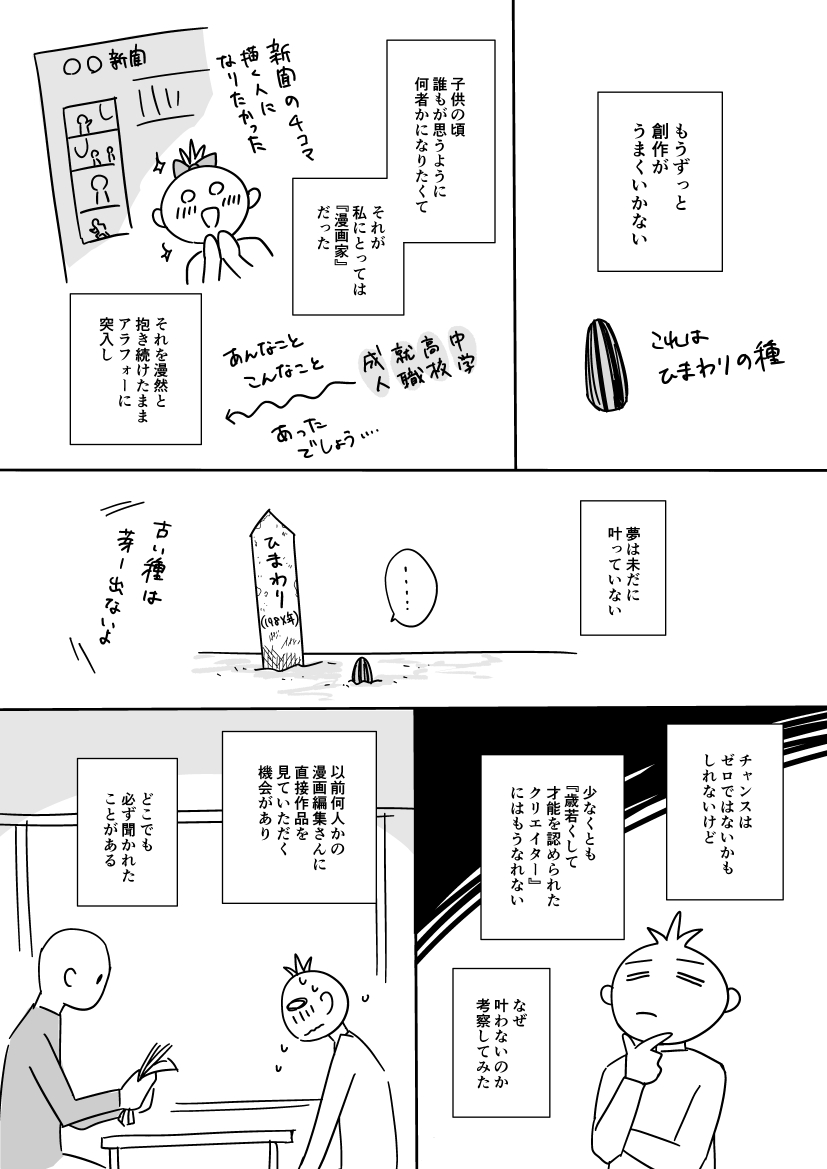 もうずっと
創作が
うまくいかない
これは
ひまわりの種
子供の頃
誰もが思うように
何者かになりたくて
それが
私にとっては
『漫画家』
だった
新聞の4コマ
描く人に
なりたかった
〇〇新聞
中学
高校
就職
成人
あんなこと
こんなこと
あった
でしょう‥‥
それを漫然と
抱き続けたまま
アラフォーに
突入し
夢は未だに
叶っていない
‥‥
ひまわり
(198X年)
古い種は
芽ー出ないよ
チャンスは
ゼロではないかも
しれないけど
少なくとも
『歳若くして
才能を認められた
クリエイター』
にはもうなれない
なぜ
叶わないのか
考察してみた
以前何人かの
漫画編集さんに
直接作品を
見ていただく
機会があり
どこでも
必ず聞かれた
ことがある